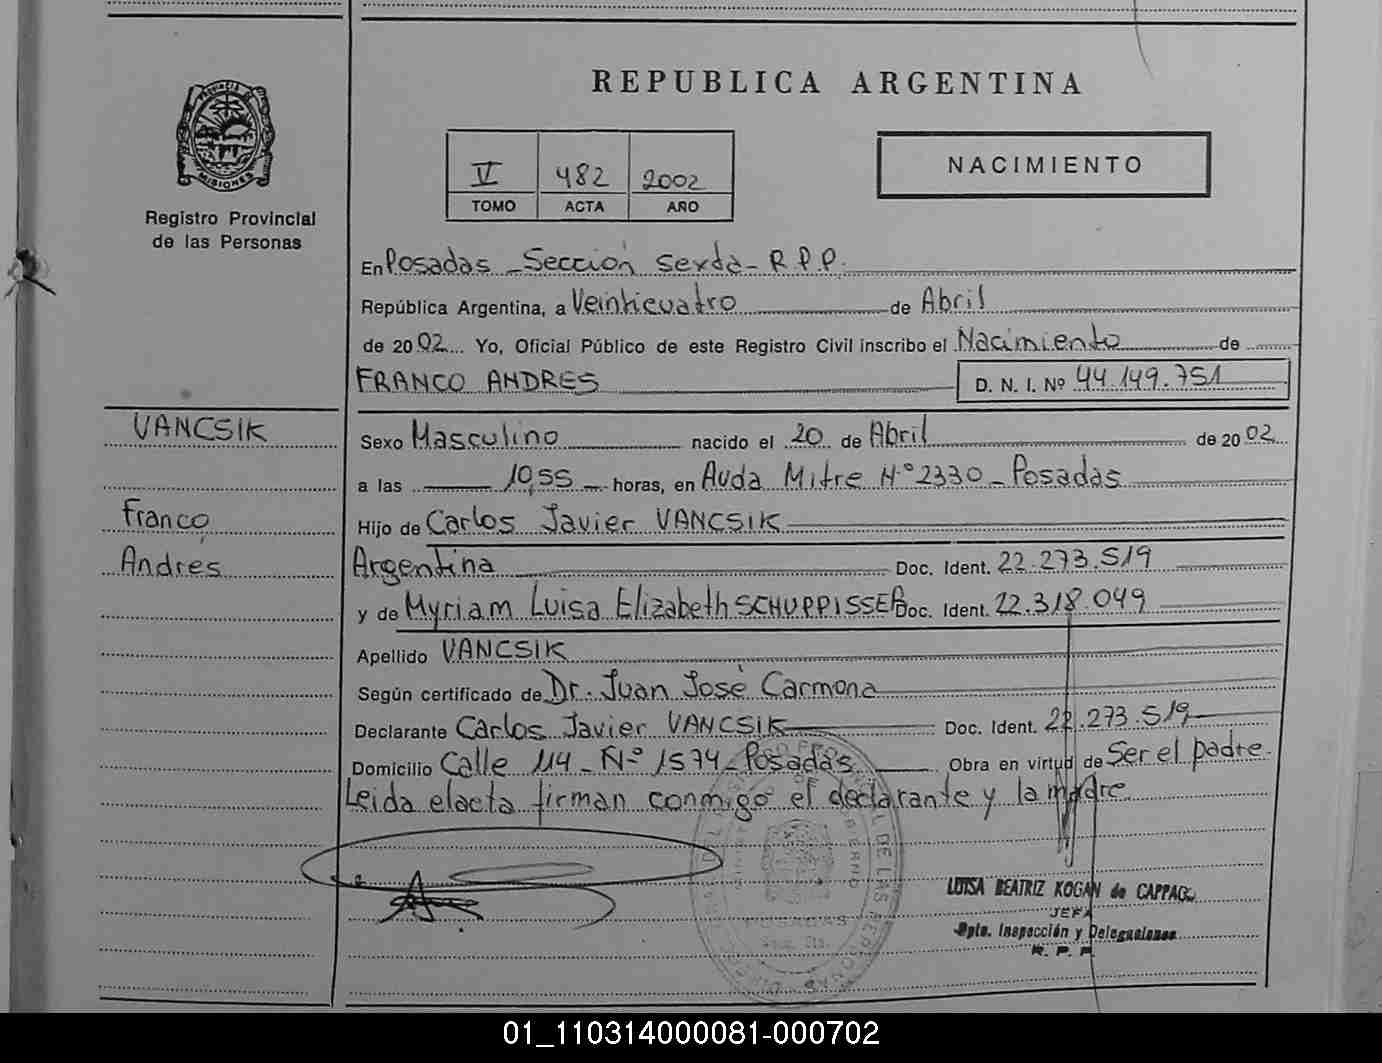 REPUBLICA ARGENTINA
PROVINCIA DE
MISIONES
Registro Provincial
de las Personas
V 482 2002
TOMO ACTA AÑO
NACIMIENTO
En Posadas - Sección Sexta - R.P.P.
República Argentina, a Veinticuatro de Abril
de 2002 Yo, Oficial Público de este Registro Civil inscribo el Nacimiento de
FRANCO ANDRES D. N. I. Nº 44.149.751
VANCSIK
Franco
Andrés
Sexo Masculino nacido el 20 de Abril de 2002
a las 10,55 horas, en Avda Mitre N° 2330 - Posadas
Hijo de Carlos Javier VANCSIK
Argentina Doc. Ident. 22.273.519
y de Myriam Luisa Elizabeth SCHUPPISSER Doc. Ident. 22.318.049
Apellido VANCSIK
Según certificado de Dr. Juan José Carmona
Declarante Carlos Javier VANCSIK Doc. Ident. 22.273.519
Domicilio Calle 114 - Nº 1574 - Posadas Obra en virtud de Ser el padre.
Leida el acta firman conmigo el declarante y la madre
POSADAS
LUISA BEATRIZ KOGAN de CAPPAGLI
JEFA
Dpto. Inspección y Delegaciones
R. P. P.
01_110314000081-000702